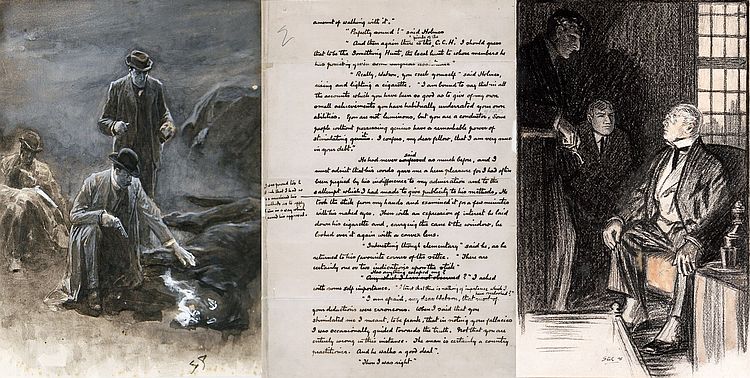 amount of walking with it."
"Perfectly sound!" said Holmes
"And then again there is the friends of the C.C.H. I should guess
that to be the Something Hunt, the local hunt to whose members he
has possibly given some surgical assistance"
"Really, Watson, you excel yourself" said Holmes,
rising and lighting a cigarette. "I am bound to say that in all
the accounts which you have been so good as to give of my own
small achievements you have habitually underrated your own
abilities. You are not luminous, but you are a conductor. Some
people without possessing genius have a remarkable power of
stimulating genius. I confess, my dear fellow, that I am very much
in your debt."
He had never said as much before, and I
must admit that his words gave me a keen pleasure for I had often
been piqued by his indifference to my admiration and to the
attempt which I had made to give publicity to his methods.
I was proud too to
think that I had so
his system as
to apply
it in a way which
earned his approval.
He
took the stick from my hands and examined it for a few minutes
with his naked eyes. Then with an expression of interest he laid
down his cigarette and, carrying the cane to the window, he
looked over it again with a convex lens.
"Interesting though elementary" said he, as he
returned to his favourite corner of the settee. "There are
certainly one or two indications upon the stick"
"Has anything escaped me?" I asked
with some self importance. "I trust that there is nothing of importance which I
have overlooked?"
"I am afraid, my dear Watson, that most of
your deductions were erroneous. When I said that you
stimulated me I meant, to be frank, that in noting your fallacies
I was occasionally guided towards the truth. Not that you are
entirely wrong in this instance. The man is certainly a country
practitioner. And he walks a good deal".
"Then I was right"